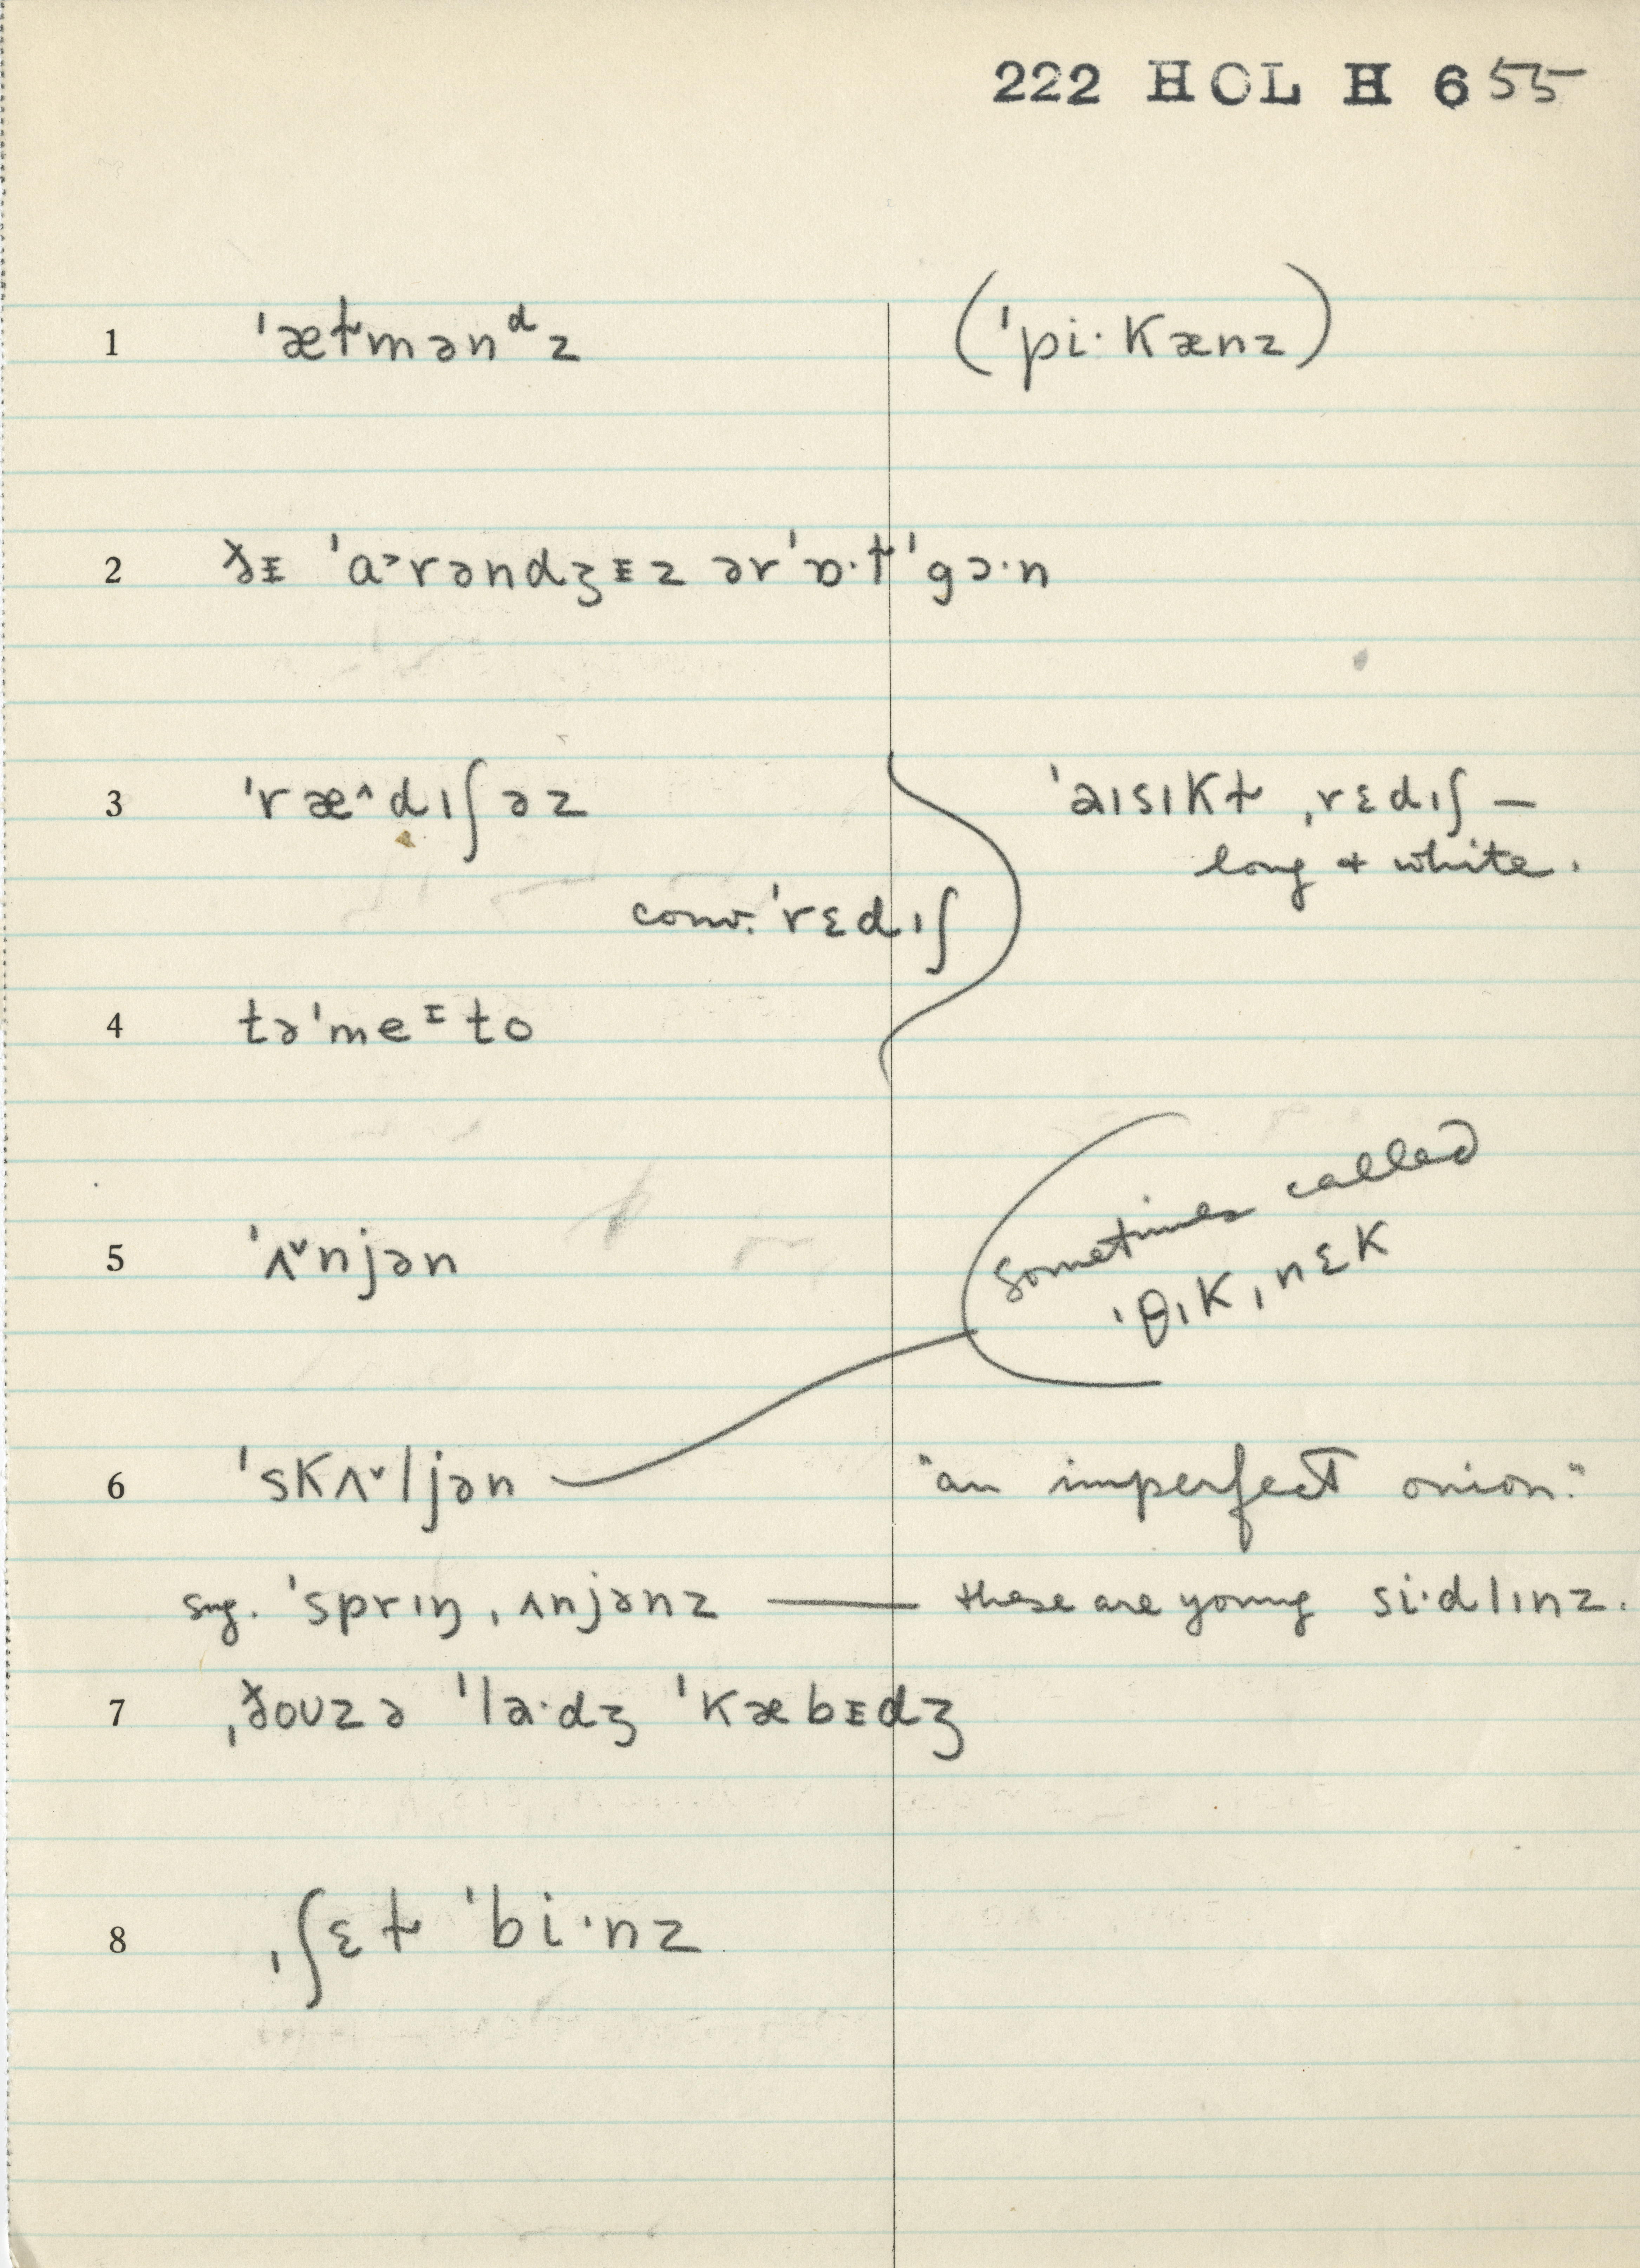 222 HOL H 655
1 ˈæɫmənᵈz (ˈpi·kænz)
2 ðᵻ ˈɑ˃rəndʒᵻz ər ˈɒ·ɫ ˈgɔ·n
3 ˈræ^dɪʃəz ˈaɪsɪkɫ ˌrɛdɪʃ —
long + white.
conv. ˈrɛdɪʃ
4 təˈmeᶦto
5 ˈʌ˅njən
sometimes called
ˈθɪkˌnɛk
6 ˈskʌ˅ljən "an imperfect onion."
sug. ˈsprɪŋˌʌnjənz — these are young si·dlɪnz.
7 ˌðoʊzə ˈla·dʒ ˈkæbᵻdʒ
8 ˌʃɛɫ ˈbi·nz